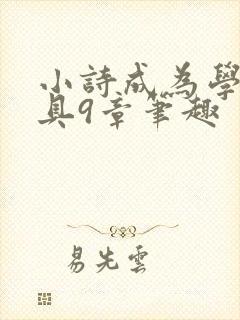 小詩成為學
具9章筆趣
易先雲